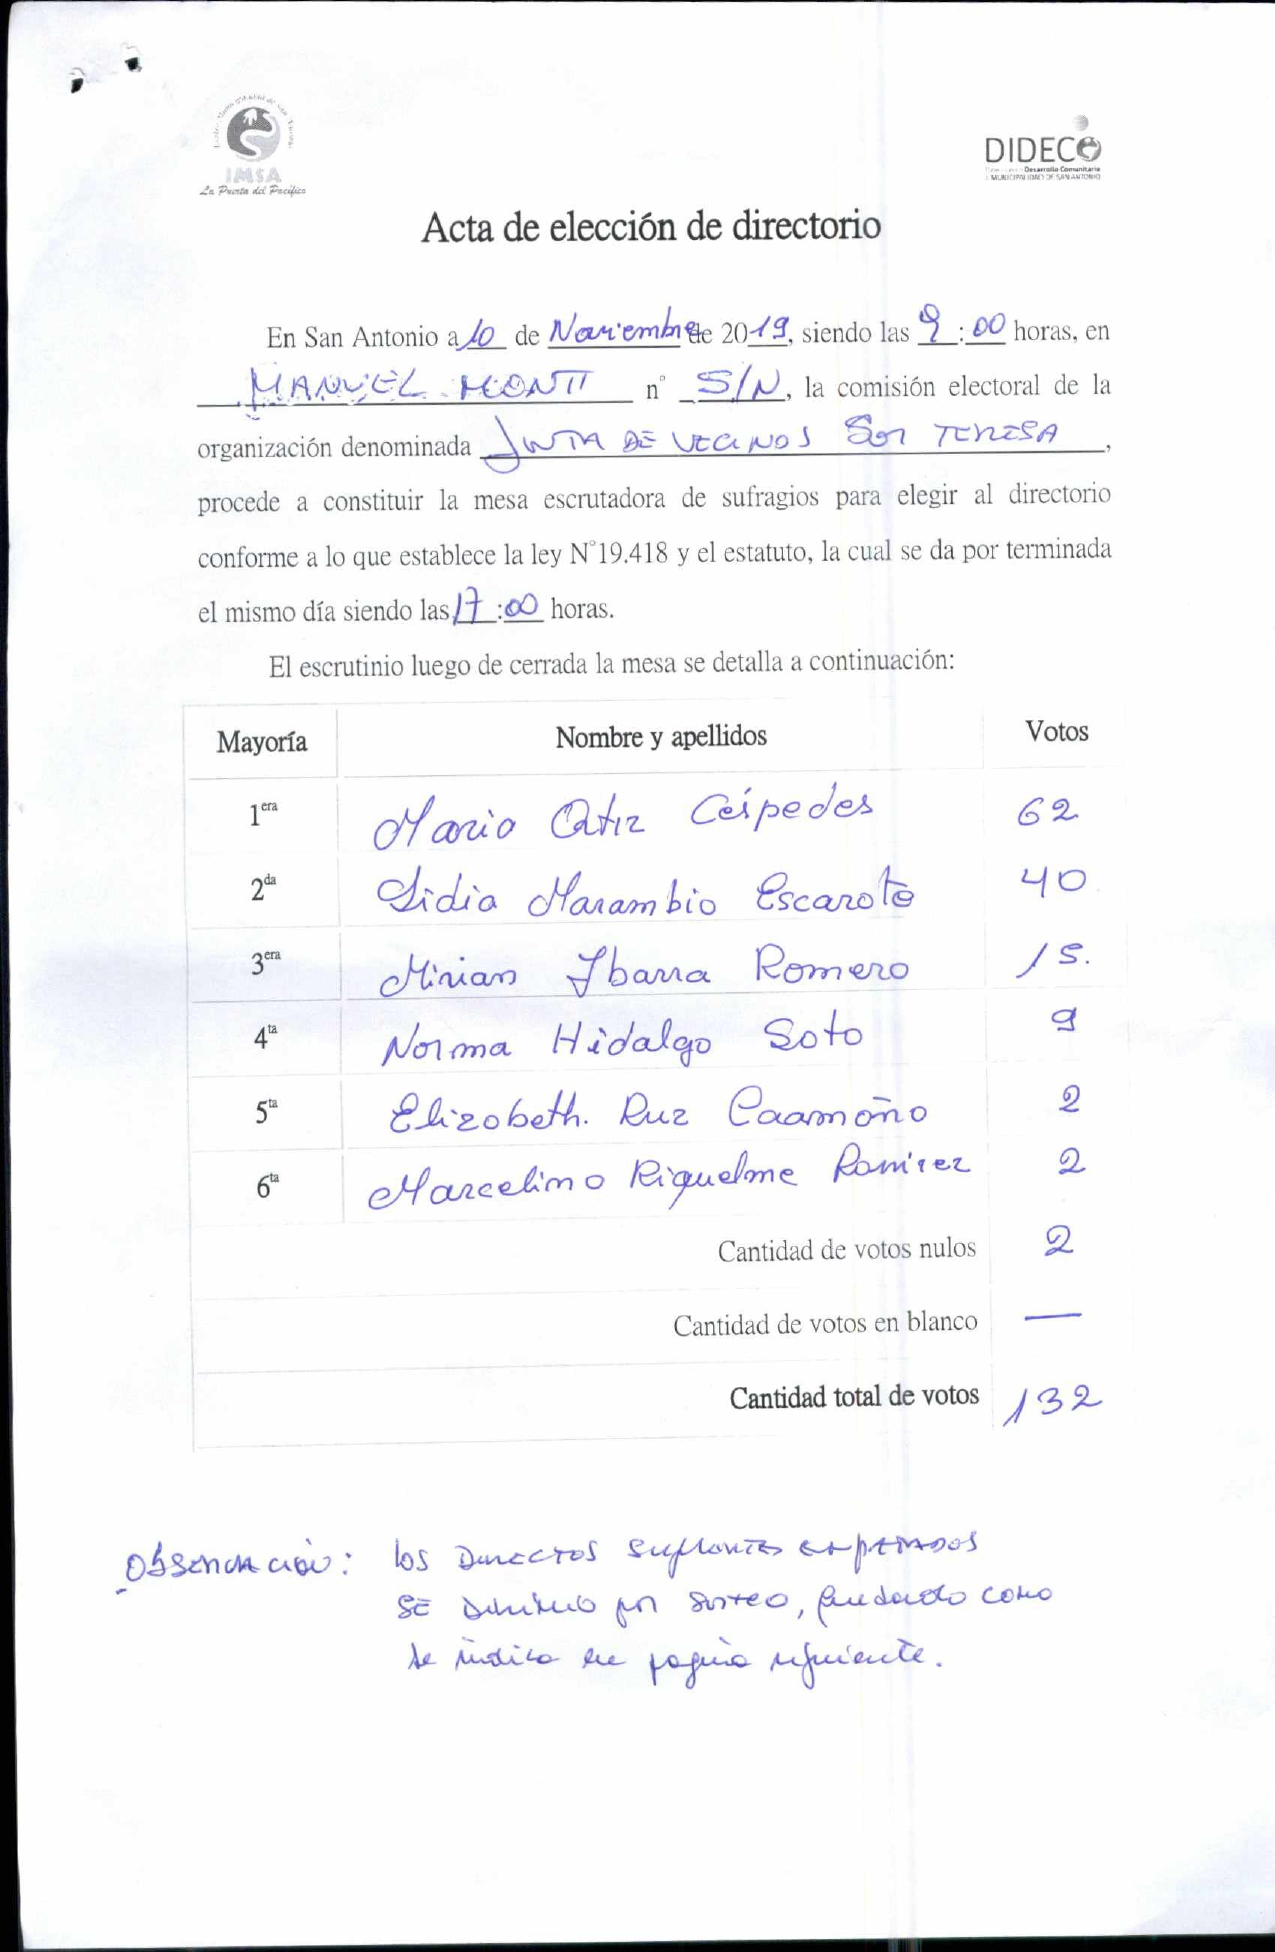 IMSA
La Puerta del Pacífico
DIDECO
Desarrollo Comunitario
I. MUNICIPALIDAD DE SAN ANTONIO
Acta de elección de directorio
En San Antonio a 10 de Noviembre de 2019, siendo las 9:00 horas, en
MANUEL MONTT n° S/N, la comisión electoral de la
organización denominada JUNTA DE VECINOS Sor TERESA,
procede a constituir la mesa escrutadora de sufragios para elegir al directorio
conforme a lo que establece la ley N°19.418 y el estatuto, la cual se da por terminada
el mismo día siendo las 17:00 horas.
El escrutinio luego de cerrada la mesa se detalla a continuación:
Mayoría Nombre y apellidos Votos
1era Mario Ortiz Céspedes 62
2da Lidia Marambio Escarate 40
3era Mirian Ibarra Romero 15.
4ta Norma Hidalgo Soto 9
5ta Elizabeth. Ruz Caamaño 2
6ta Marcelino Riquelme Ramirez 2
Cantidad de votos nulos 2
Cantidad de votos en blanco —
Cantidad total de votos 132
Observación: los Directores suplentes empatados
SE dirimió por sorteo, quedando como
se indica en pagina siguiente.